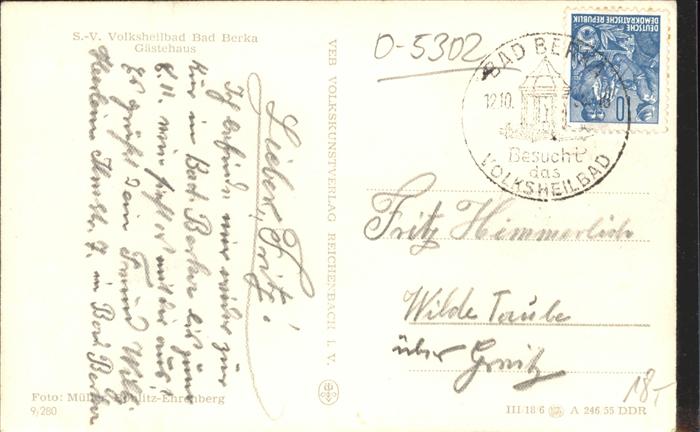 S.-V. Volksheilbad Bad Berka
Gästehaus
Lieber Fritz!
Ich befinde mich wieder zur
Kur in Bad Berka bis zum
8.11.
Es grüßt Dein Freund Willi
in Bad Berka
Foto: Müller, Böhlitz-Ehrenberg
9/280
VEB VOLKSKUNSTVERLAG REICHENBACH I. V.
O-5302
BAD BERKA
12.10.
Besucht
das
VOLKSHEILBAD
DEUTSCHE
DEMOKRATISCHE REPUBLIK
10
Fritz Himmerlich
Wilde Taube
über Greiz
18,-
III 18 6 A 246 55 DDR